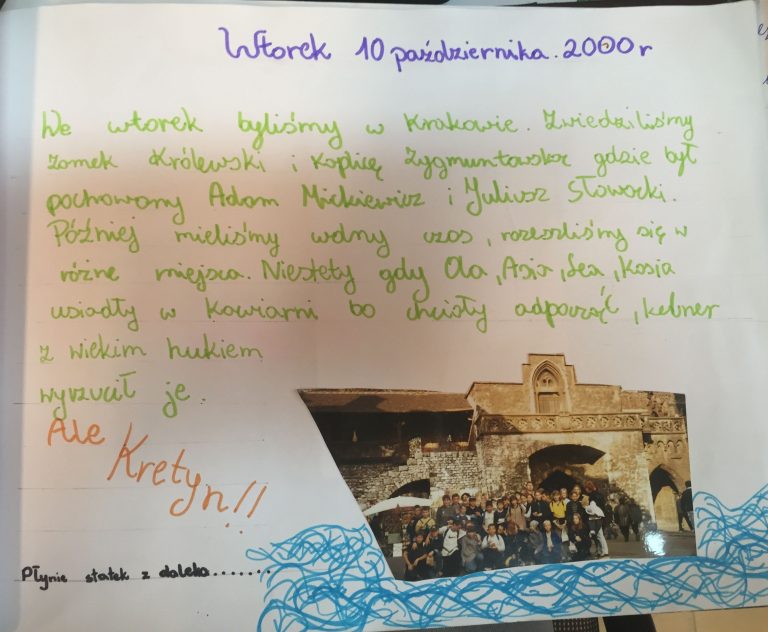 Wtorek 10 października. 2000 r
We wtorek byliśmy w Krakowie. Zwiedziliśmy
zamek Królewski i kaplicę Zygmuntowską gdzie był
pochowany Adam Mickiewicz i Juliusz Słowacki.
Później mieliśmy wolny czas, rozeszliśmy się w
różne miejsca. Niestety gdy Ola, Asia, Iza, Kasia
usiadły w kawiarni bo chciały odpocząć, kelner
z wiekim hukiem
wyrzucił je.
Ale
Kretyn!!
Płynie statek z daleka.......